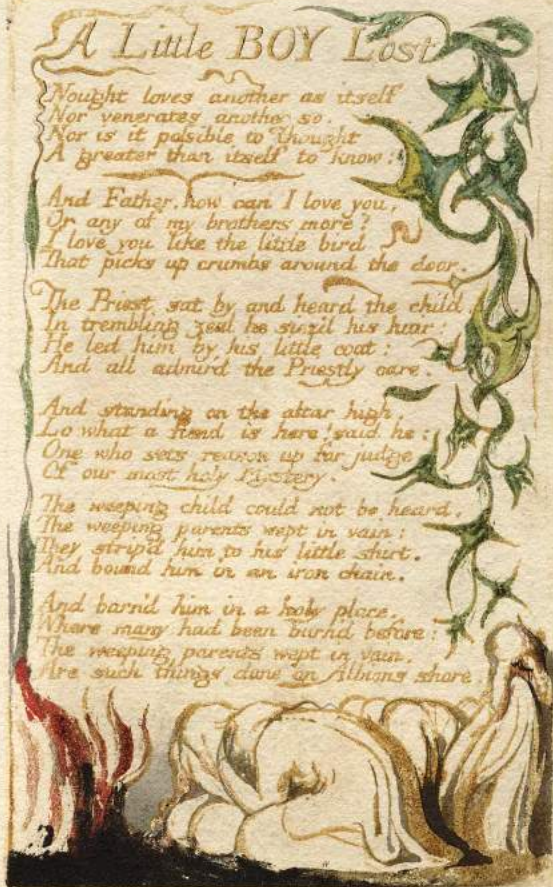 A Little BOY Lost
Nought loves another as itself
Nor venerates another so.
Nor is it possible to Thought
A greater than itself to know:
And Father, how can I love you,
Or any of my brothers more?
I love you like the little bird
That picks up crumbs around the door.
The Priest sat by and heard the child,
In trembling zeal he siez'd his hair:
He led him by his little coat:
And all admir'd the Priestly care.
And standing on the altar high,
Lo what a fiend is here! said he:
One who sets reason up for judge
Of our most holy Mystery.
The weeping child could not be heard,
The weeping parents wept in vain:
They strip'd him to his little shirt.
And bound him in an iron chain.
And burn'd him in a holy place,
Where many had been burn'd before:
The weeping parents wept in vain.
Are such things done on Albions shore.